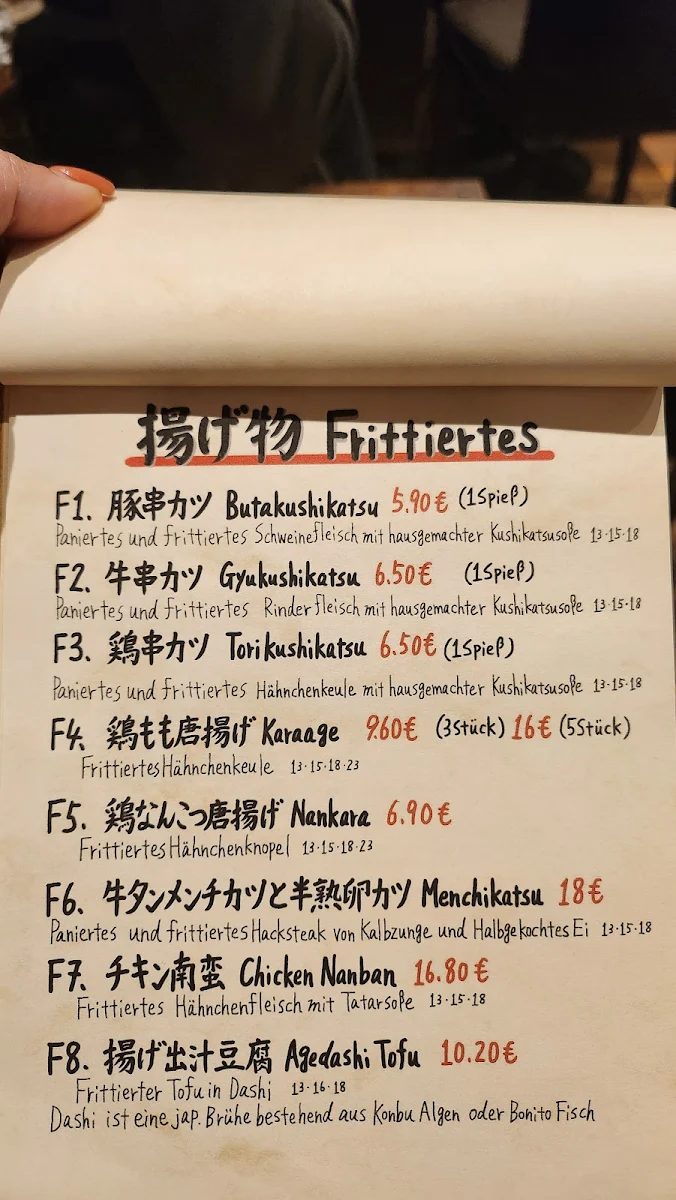 揚げ物 Frittiertes
F1. 豚串カツ Butakushikatsu 5.90€ (1Spieß)
Paniertes und frittiertes Schweinefleisch mit hausgemachter Kushikatsusoße 13·15·18
F2. 牛串カツ Gyukushikatsu 6.50€ (1Spieß)
Paniertes und frittiertes Rinderfleisch mit hausgemachter Kushikatsusoße 13·15·18
F3. 鶏串カツ Torikushikatsu 6.50€ (1Spieß)
Paniertes und frittiertes Hähnchenkeule mit hausgemachter Kushikatsusoße 13·15·18
F4. 鶏もも唐揚げ Karaage 9.60€ (3Stück) 16€ (5Stück)
Frittiertes Hähnchenkeule 13·15·18·23
F5. 鶏なんこつ唐揚げ Nankara 6.90€
Frittiertes Hähnchenknopel 13·15·18·23
F6. 牛タンメンチカツと半熟卵カツ Menchikatsu 18€
Paniertes und frittiertes Hacksteak von Kalbzunge und Halbgekochtes Ei 13·15·18
F7. チキン南蛮 Chicken Nanban 16.80€
Frittiertes Hähnchenfleisch mit Tatarsoße 13·15·18
F8. 揚げ出汁豆腐 Agedashi Tofu 10.20€
Frittierter Tofu in Dashi 13·16·18
Dashi ist eine jap. Brühe bestehend aus Konbu Algen oder Bonito Fisch